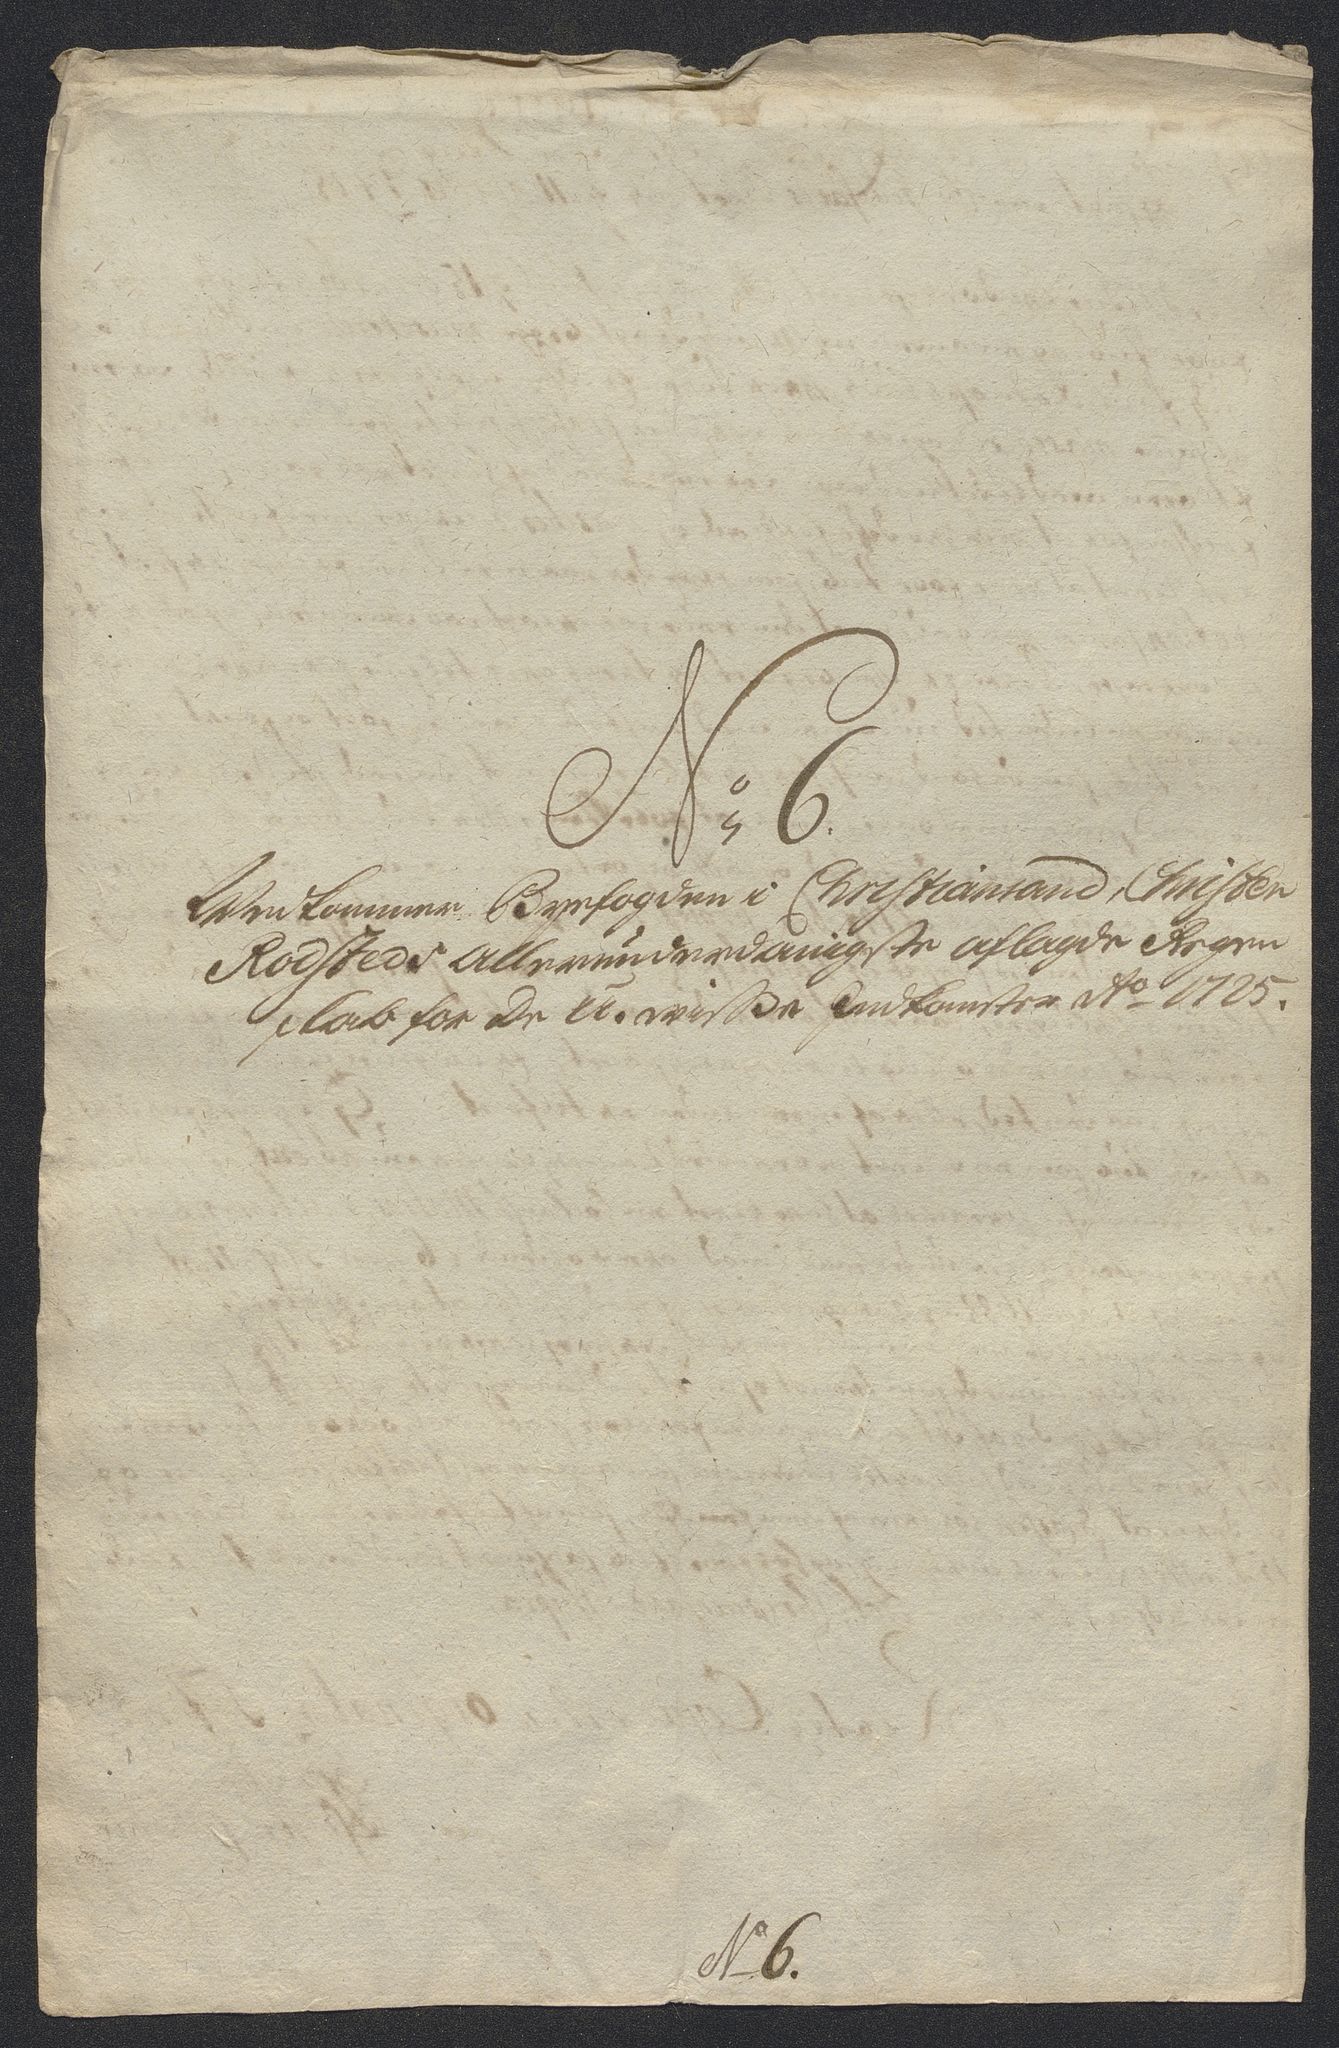 No 6.
Vedkommer Byefogden i Christiansand, Christen
Rodsteds allerunderdanigste aflagde Regen
skab for De U. visse Indkomster Ao 1725.
No 6.